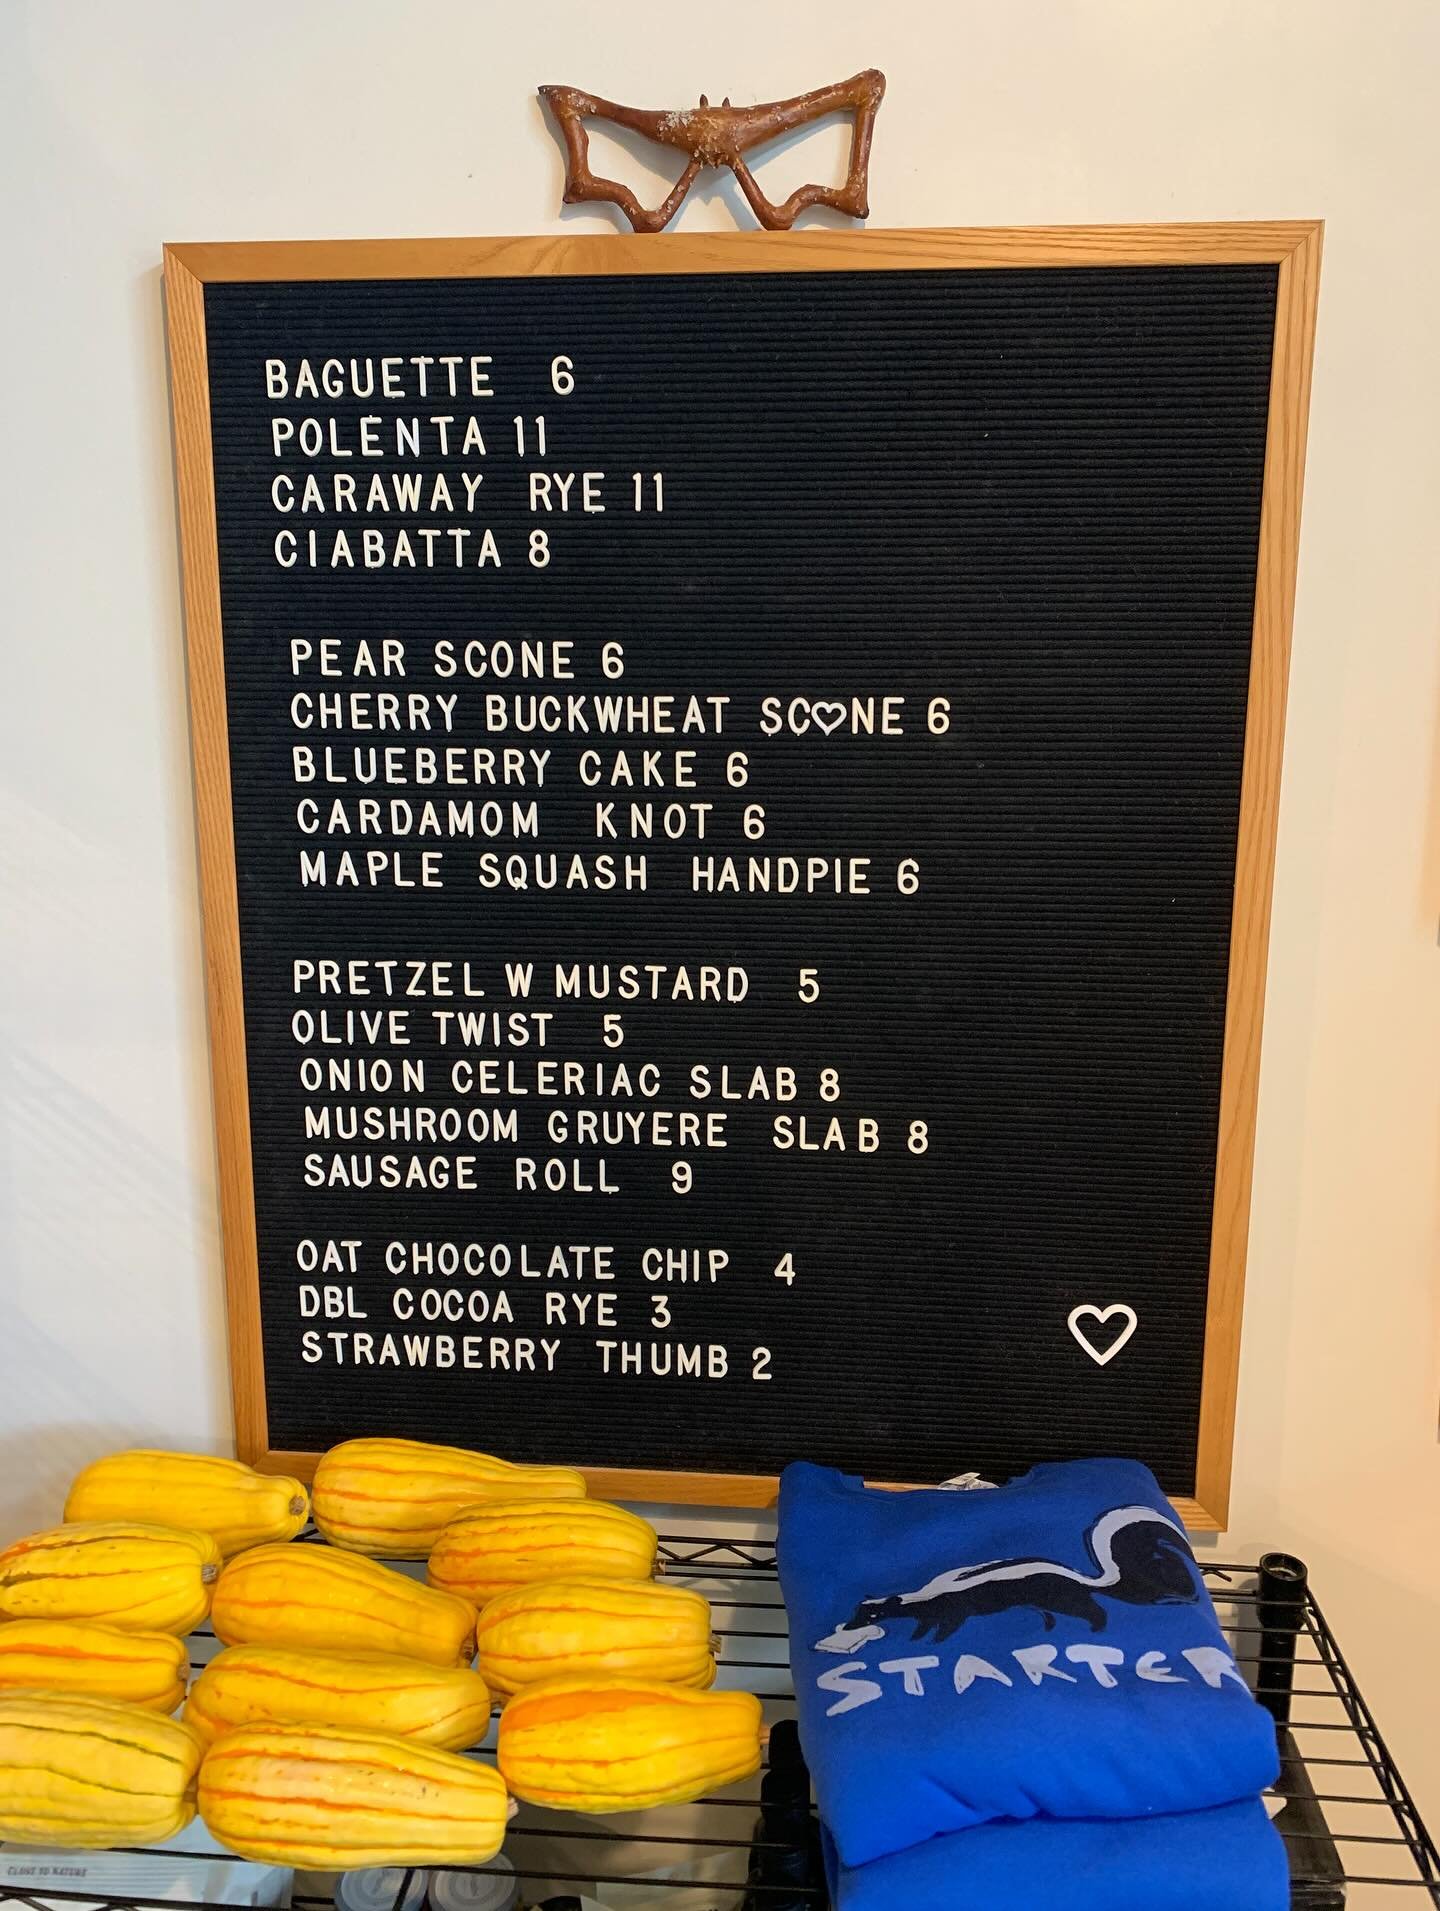 BAGUETTE 6
POLENTA 11
CARAWAY RYE 11
CIABATTA 8
PEAR SCONE 6
CHERRY BUCKWHEAT SC♡NE 6
BLUEBERRY CAKE 6
CARDAMOM KNOT 6
MAPLE SQUASH HANDPIE 6
PRETZEL W MUSTARD 5
OLIVE TWIST 5
ONION CELERIAC SLAB 8
MUSHROOM GRUYERE SLAB 8
SAUSAGE ROLL 9
OAT CHOCOLATE CHIP 4
DBL COCOA RYE 3
STRAWBERRY THUMB 2
♡
STARTER
CLOSE TO NATURE